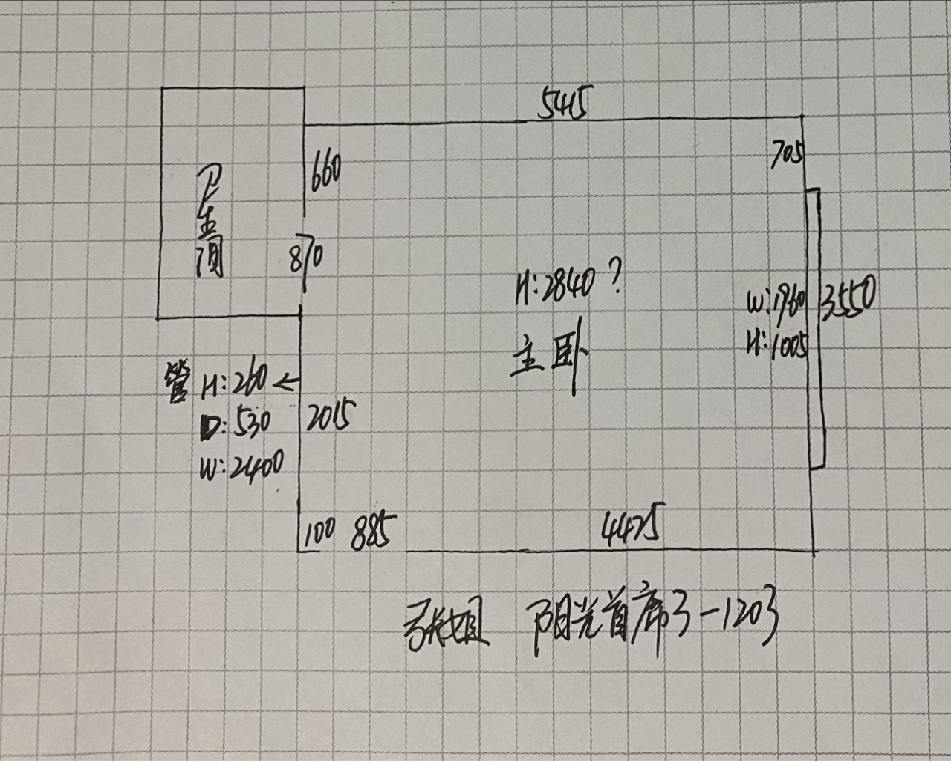 5415
705
660
卫生间
870
H:2840?
W:1960
3550
H:1005
主卧
管 H:260
D:530
W:2400
2015
100 885
4475
张姐 阳光首席3-1203